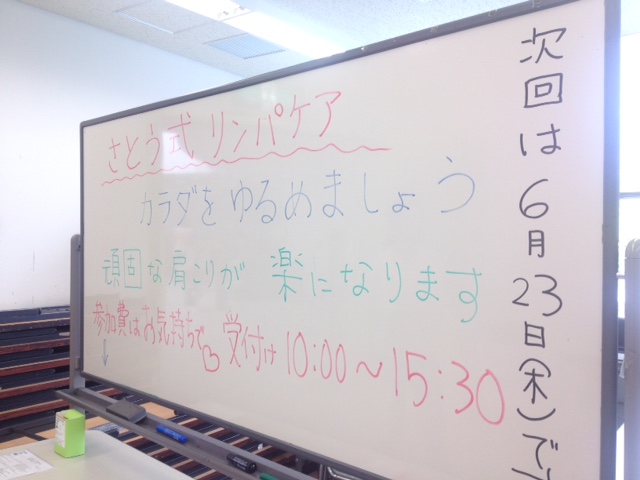 さとう式 リンパケア
カラダを ゆるめましょう
頑固な肩こりが 楽になります
参加費はお気持ちで 受付け 10:00〜15:30
次回は6月23日(木)で